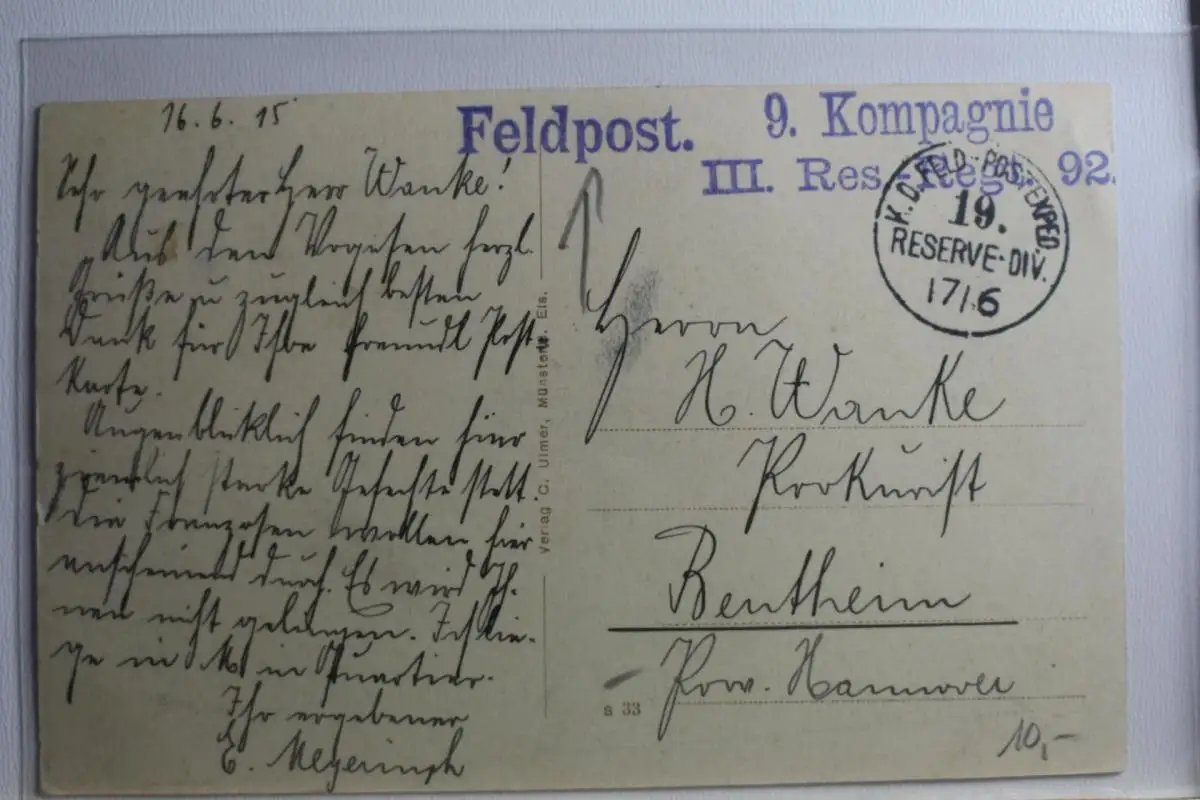 16.6.15
Sehr geehrter Herr Wanke!
Aus den Vogesen herzl.
Grüße u zugleich besten
Dank für Ihre freundl Post
Karte.
Augenblicklich finden hier
ziemlich starke Gefechte statt.
Die Franzosen wollen hier
anscheinend durch. Es wird Ih-
nen nicht gelingen. Ich lie-
ge in M. in Quartier.
Ihr ergebener
E. Meyerinck
Verlag C. Ulmer, Münster i. Els.
Feldpost.
9. Kompagnie
III. Res.-Regt. 92.
K.D. FELD-POSTEXPED.
19.
RESERVE-DIV.
17/6
Herrn
H. Wanke
Prokurist
Bentheim
Prov. Hannover
a 33
10,-